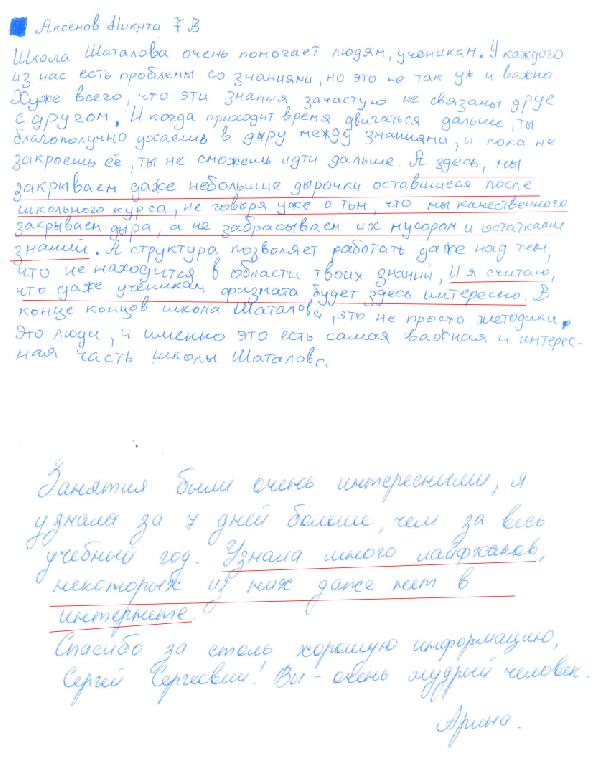 Аксенов Никита 7 В
Школа Шаталова очень помогает людям, ученикам. У каждого
из нас есть проблемы со знаниями, но это не так уж и важно
Хуже всего, что эти знания зачастую не связаны друг
с другом. И когда приходит время двигаться дальше, ты
благополучно ухаешь в дыру между знаниями, и пока не
закроешь её, ты не сможешь идти дальше. А здесь, мы
закрываем даже небольшие дырочки оставшиеся после
школьного курса, не говоря уже о том, что мы качественного
закрываем дыра, а не забрасываем их мусором и остатками
знаний. А структура позволяет работать даже над тем,
что не находится в области твоих знаний, И я считаю,
что даже ученикам физмата будет здесь интересно. В
конце концов школа Шаталова, это не просто методики,
это люди, и именно это есть самая важная и интерес-
ная часть школы Шаталова.
Занятия были очень интересными, я
узнала за 7 дней больше, чем за весь
учебный год. Узнала много лайфхаков,
некоторых из них даже нет в
интернете.
Спасибо за столь хорошую информацию,
Сергей Сергеевич! Вы - очень мудрый человек.
Арина.